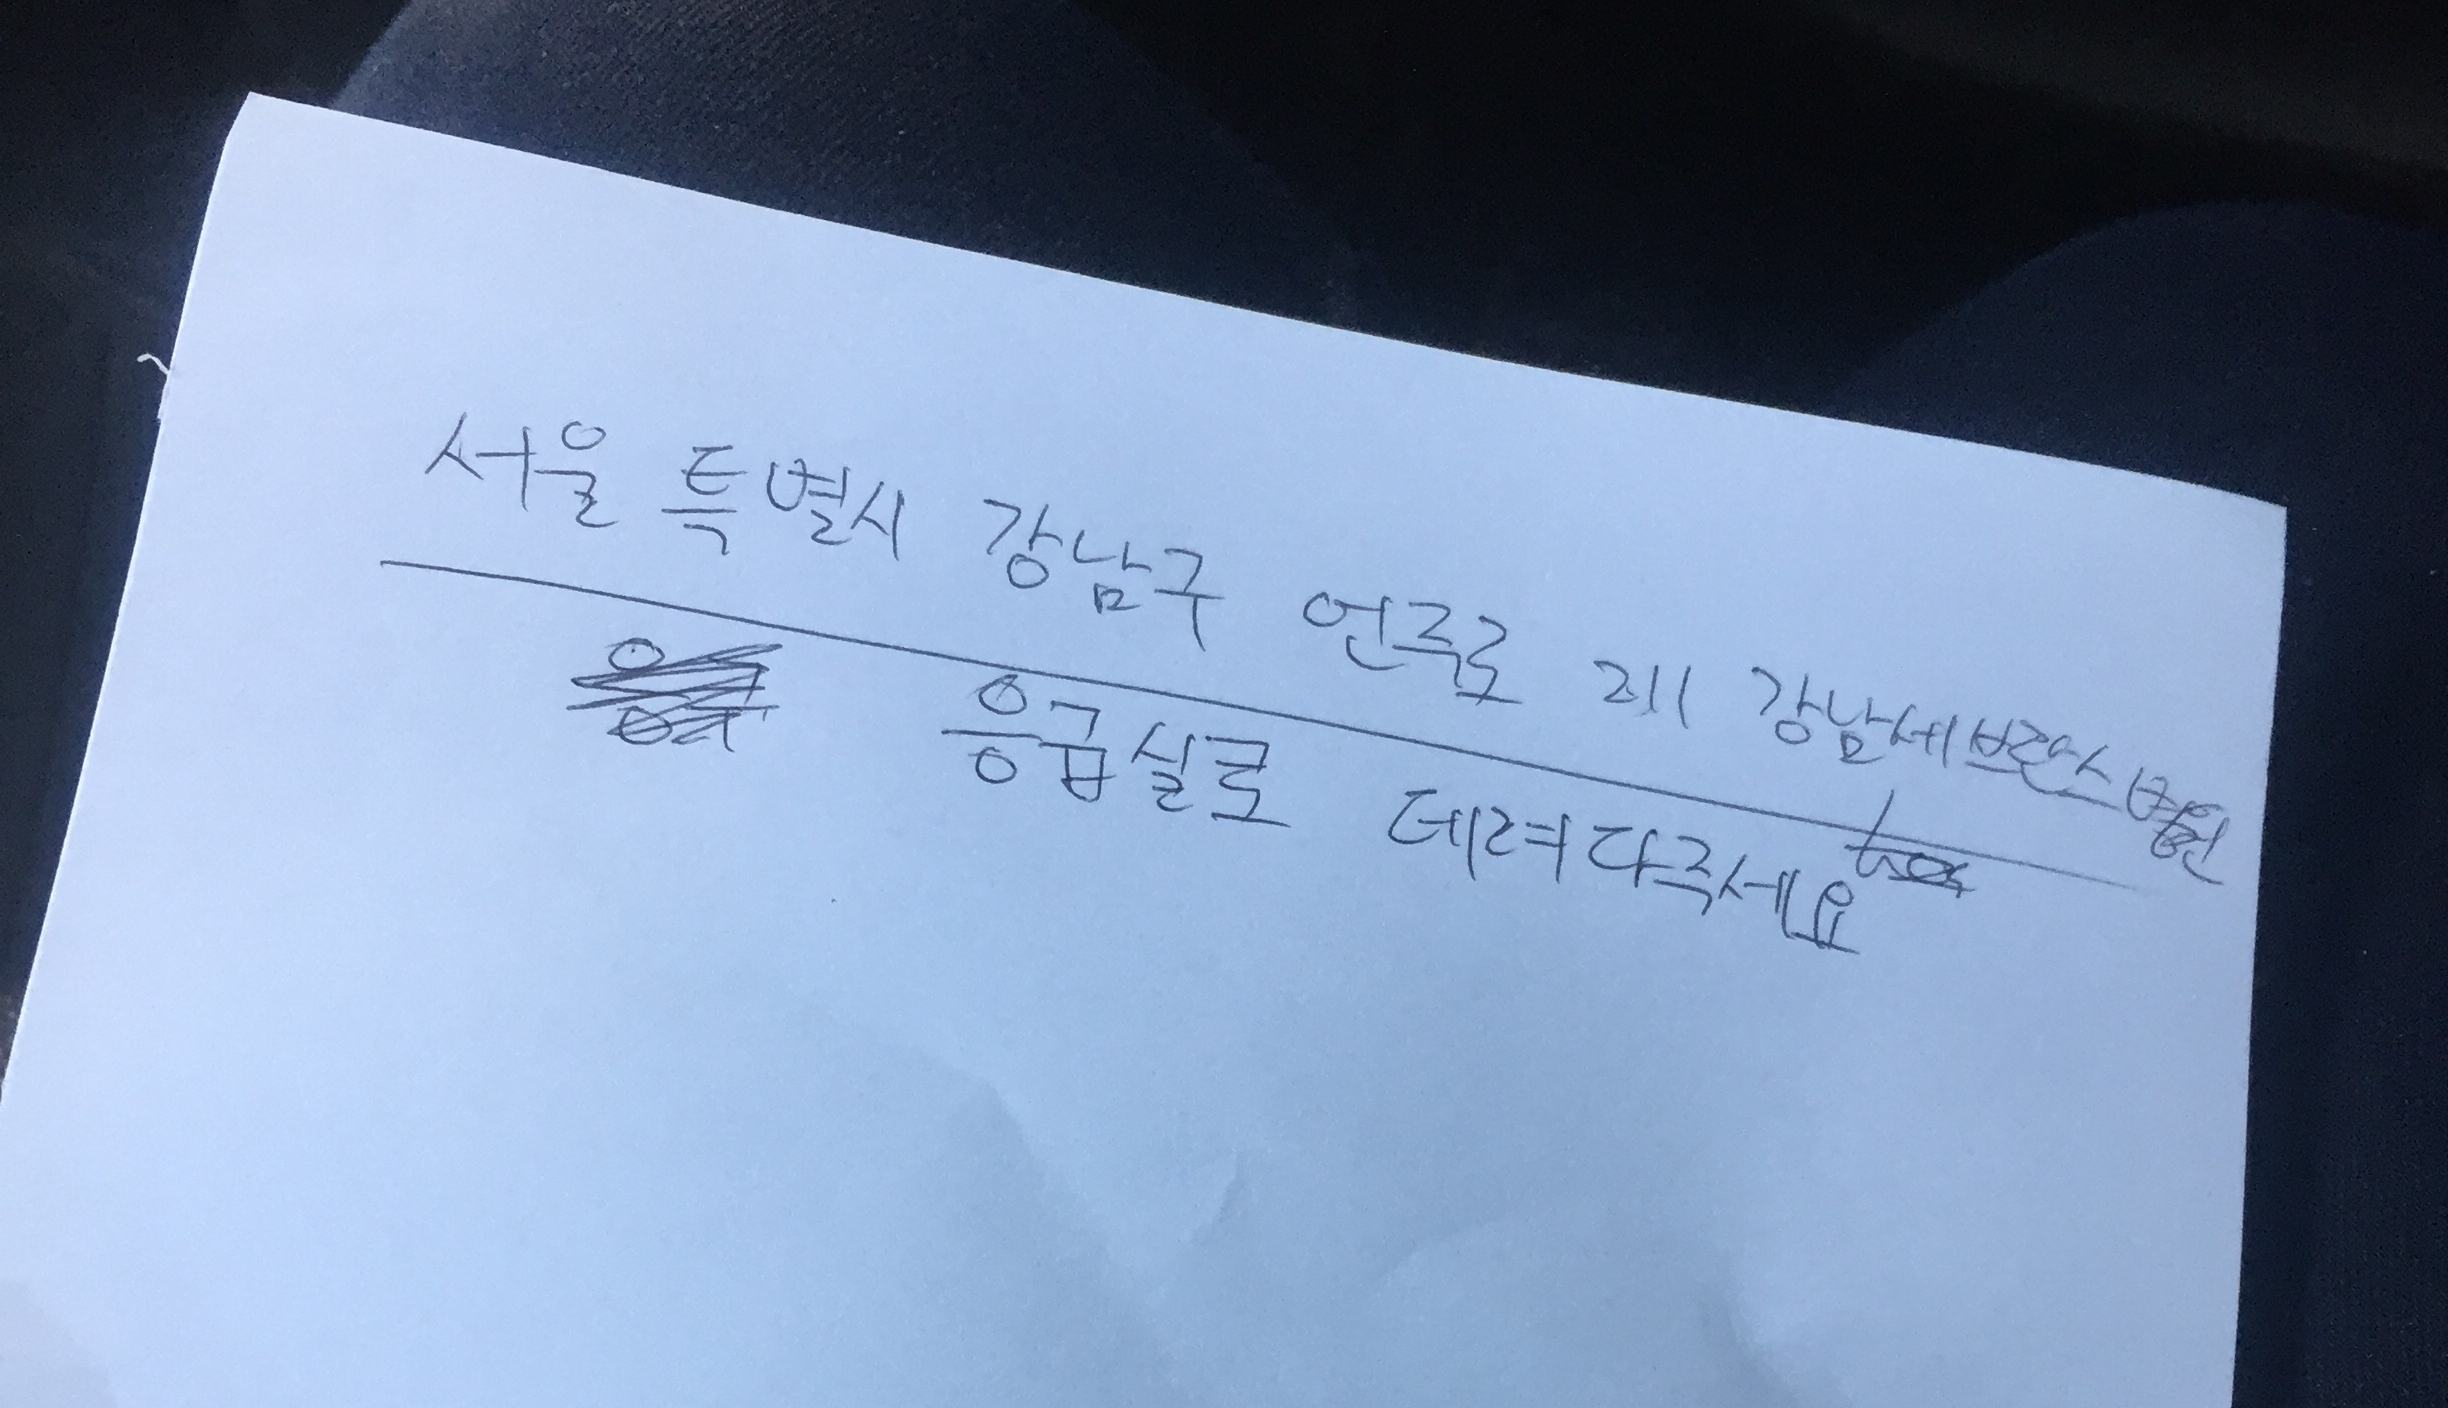 서울 특별시 강남구 언주로 211 강남세브란스병원
응급실로 데려다주세요